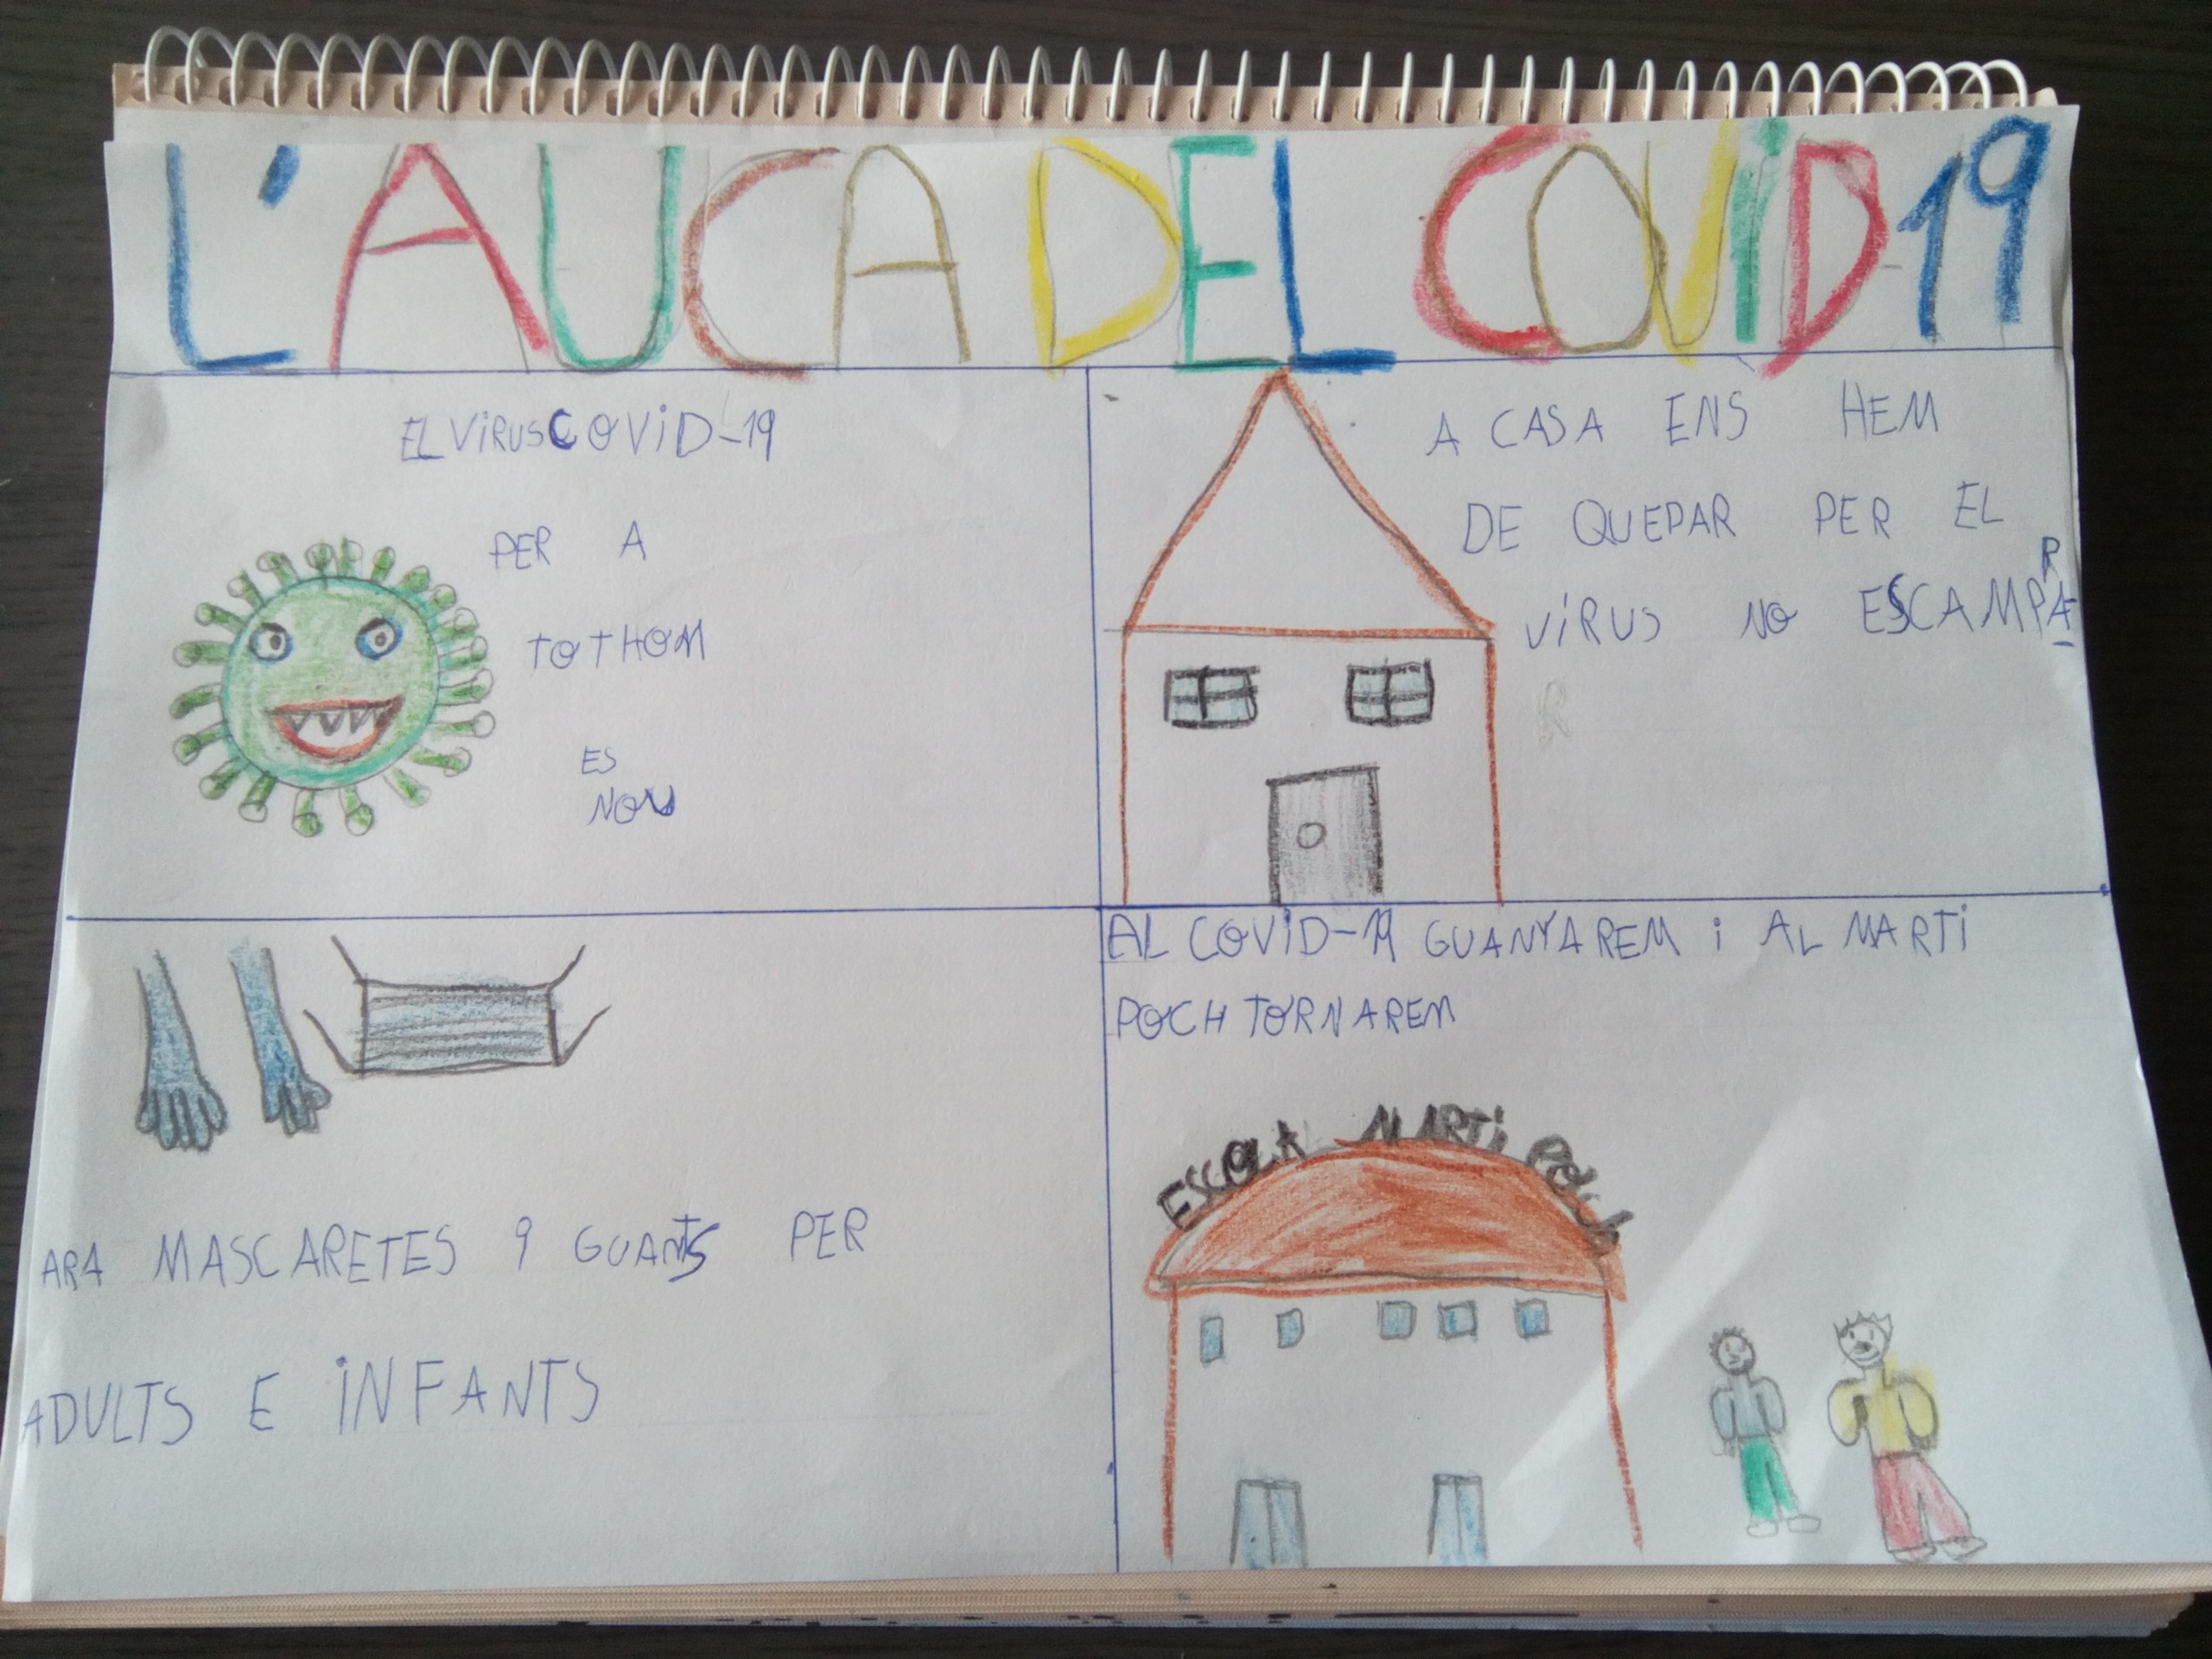 L'AUCA DEL COViD19
EL ViRUS COViD-19
PER A
TOTHOM
ES
NOU
A CASA ENS HEM
DE QUEDAR PER EL
ViRUS NO ESCAMPAR
ARA MASCARETES I GUANTS PER
ADULTS E iNFANTS
AL COViD-19 GUANYAREM i AL MARTi
POCH TORNAREM
ESCOLA MARTi POCH